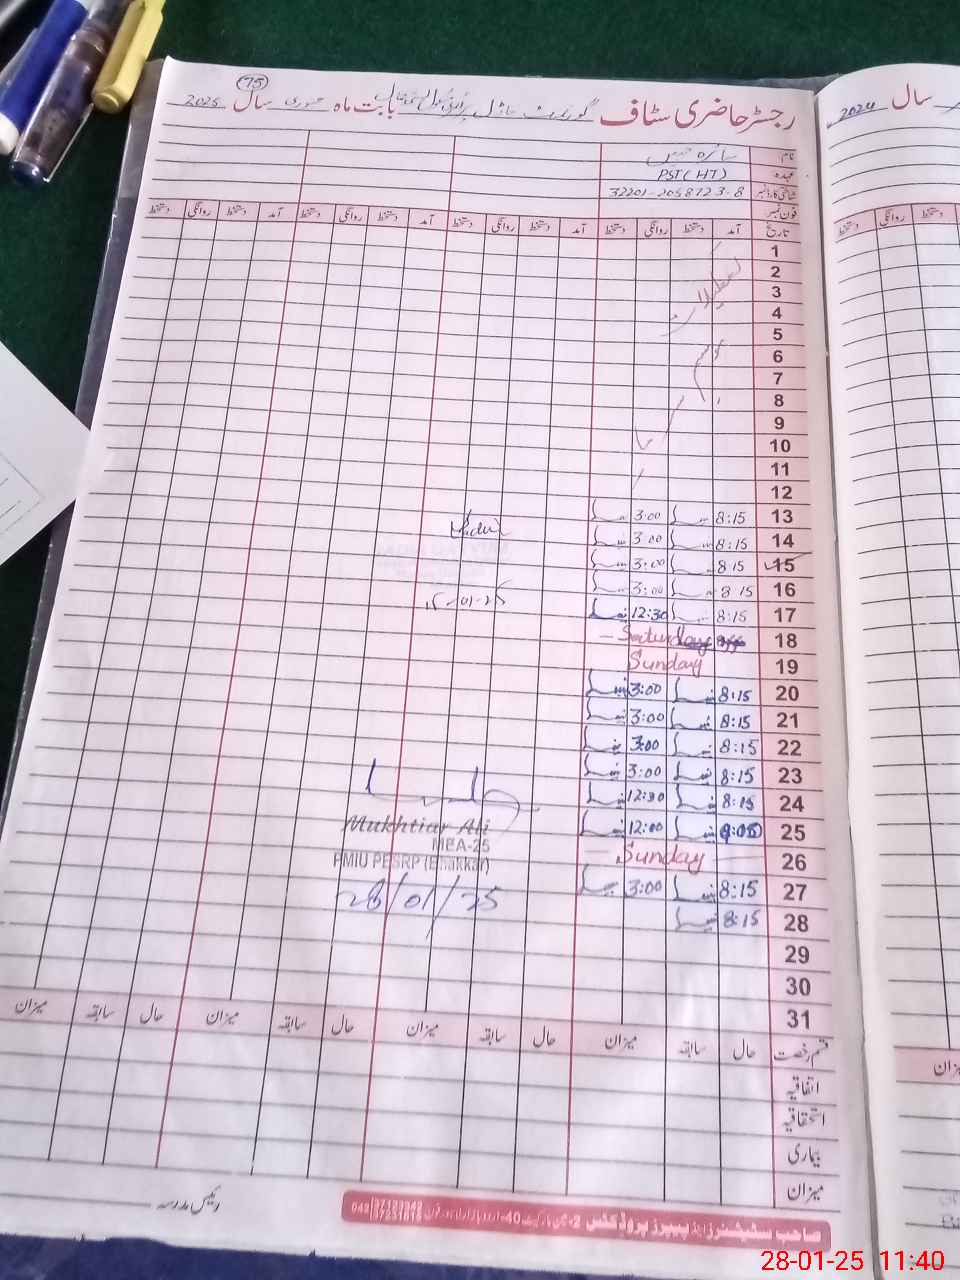 75
رجسٹر حاضری سٹاف گورنمنٹ ماڈل پرائمری سکول بابت ماہ جنوری سال 2025
نام
عہدہ PST (HT)
شناختی کارڈ نمبر 32201-2058723-8
فون نمبر
تاریخ آمد دستخط روانگی دستخط آمد دستخط روانگی دستخط آمد دستخط روانگی دستخط آمد دستخط روانگی دستخط
1
2
3
4
5
6
7
8
9
10
11
12
13 8:15 3:00
14 8:15 3:00
15 8 15 3:00
16 8 15 3:00
17 8:15 12:30
18 Saturday off
19 Sunday
20 8:15 3:00
21 8:15 3:00
22 8:15 3:00
23 8:15 3:00
24 8:15 12:30
25 9:05 12:00
26 Sunday
27 8:15 3:00
28 8:15
29
30
31
تعطیلات
موسم
15-01-25
Mukhtiar Ali
MEA-25
PMIU PESRP (Bhakkar)
28/01/25
قسم رخصت حال سابقہ میزان حال سابقہ میزان حال سابقہ میزان حال سابقہ میزان
اتفاقیہ
استحقاقیہ
بیماری
میزان
رئیس مدرسہ
صاحب سٹیشنرز اینڈ پیپرز پروڈکٹس
سال 2024
روانگی دستخط
میزان
28-01-25 11:40